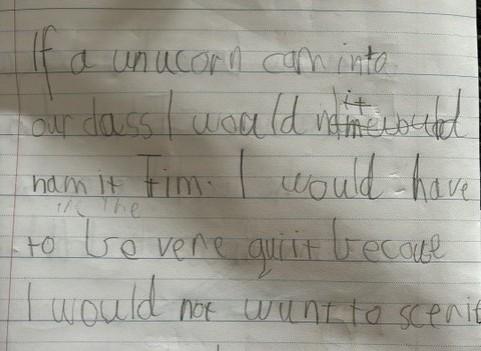 If a unucorn cam into
our class I would
nam it Tim. I would have
to be vere quiit becaue
I would not wunt to scerit